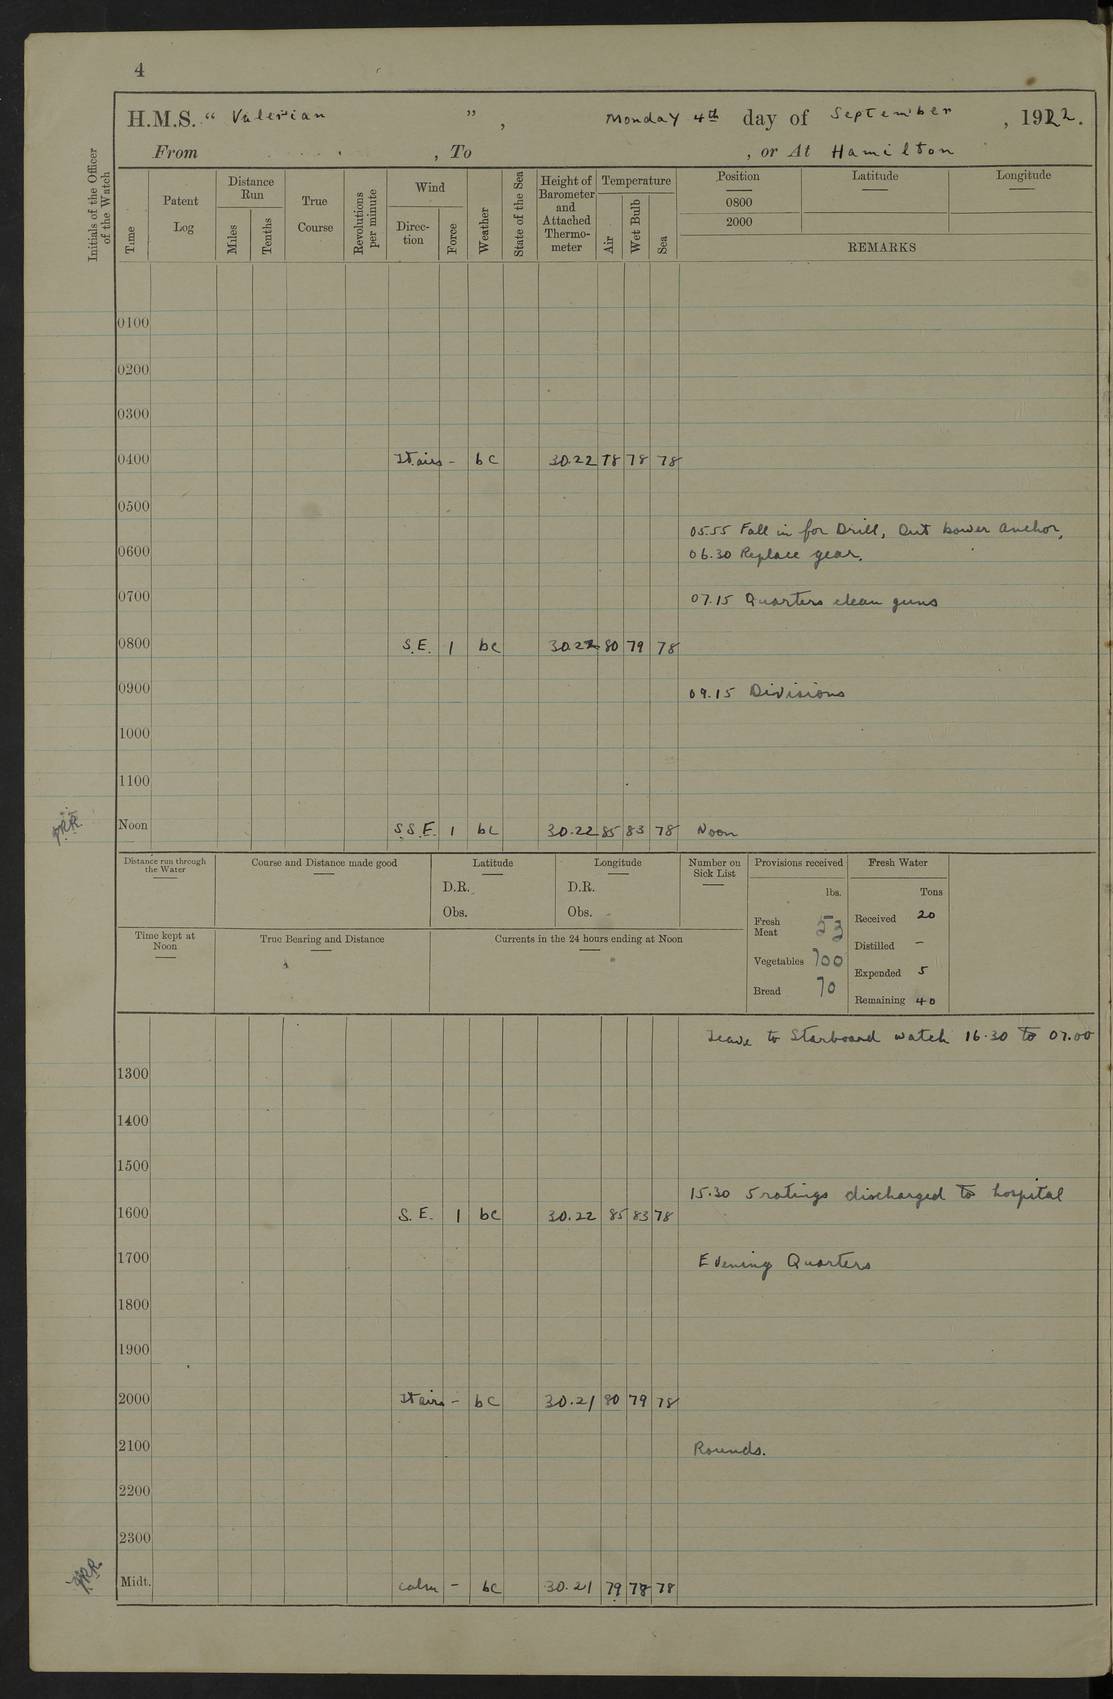 4
H.M.S. “ Valerian ” , Monday 4th day of September , 1922.
From , To , or At Hamilton
Initials of the Officer of the Watch
Time
Patent Log
Distance Run
Miles
Tenths
True Course
Revolutions per minute
Wind
Direc-tion
Force
Weather
State of the Sea
Height of Barometer and Attached Thermo-meter
Temperature
Air
Wet Bulb
Sea
Position Latitude Longitude
0800
2000
REMARKS
0100
0200
0300
0400 Lt airs - bc 30.22 78 78 78
0500
05.55 Fall in for Drill, Out bower anchor,
0600 06.30 Replace gear.
0700 07.15 Quarters clean guns
0800 S.E. 1 bc 30.22 80 79 78
0900 09.15 Divisions
1000
1100
Noon S.S.E. 1 bc 30.22 85 83 78 Noon
Distance run through the Water
Course and Distance made good
Latitude
D.R.
Obs.
Longitude
D.R.
Obs.
Number on Sick List
Provisions received
lbs.
Fresh Meat 53
Vegetables 100
Bread 70
Fresh Water
Tons
Received 20
Distilled -
Expended 5
Remaining 40
Time kept at Noon
True Bearing and Distance
Currents in the 24 hours ending at Noon
Leave to Starboard watch 16.30 to 07.00
1300
1400
1500
15.30 5 ratings discharged to hospital
1600 S.E. 1 bc 30.22 85 83 78
1700 Evening Quarters
1800
1900
2000 Lt airs - bc 30.21 80 79 78
2100 Rounds.
2200
2300
Midt. calm - bc 30.21 79 78 78